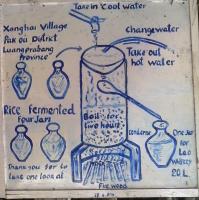 Take in Cool water
Xanghai Village
Pak ou District
Luangprabang
Province
Change water
Take out
hot water
Rice fermented
four Jars
Boil for
five hours
condense
One Jar
for
Lao
whisky
20 L
Thank you for to
take one look at
Fire wood